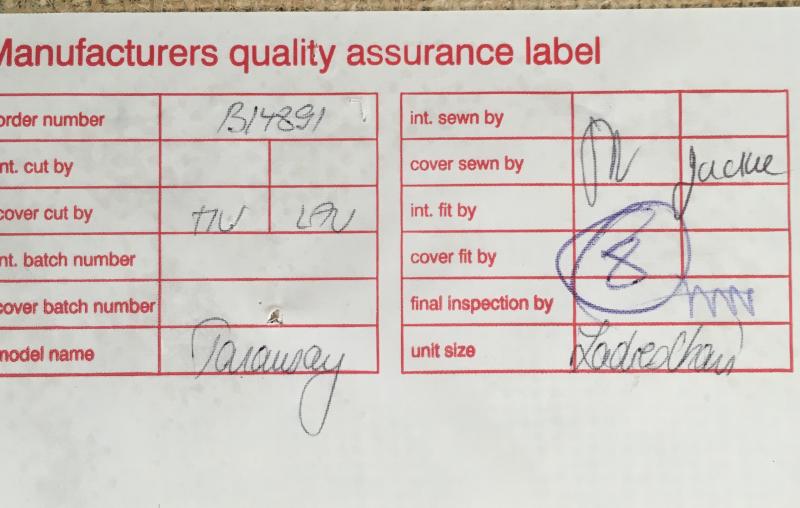 Manufacturers quality assurance label
order number B14891
int. cut by
cover cut by
int. batch number
cover batch number
model name Taransay
int. sewn by
cover sewn by Jackie
int. fit by
cover fit by 8
final inspection by
unit size Ladies Chair